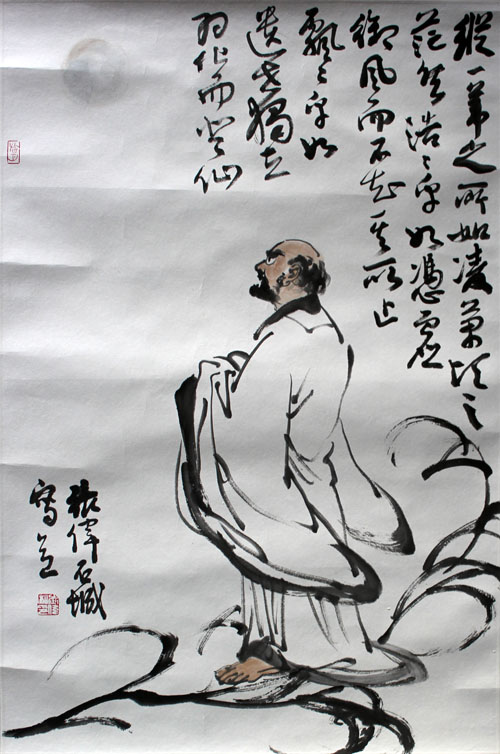 縱一苇之所如凌萬頃之
茫然浩〻乎如憑虛
御風而不知其所止
飄〻乎如
遺世獨立
羽化而登仙
振偉石城
寫